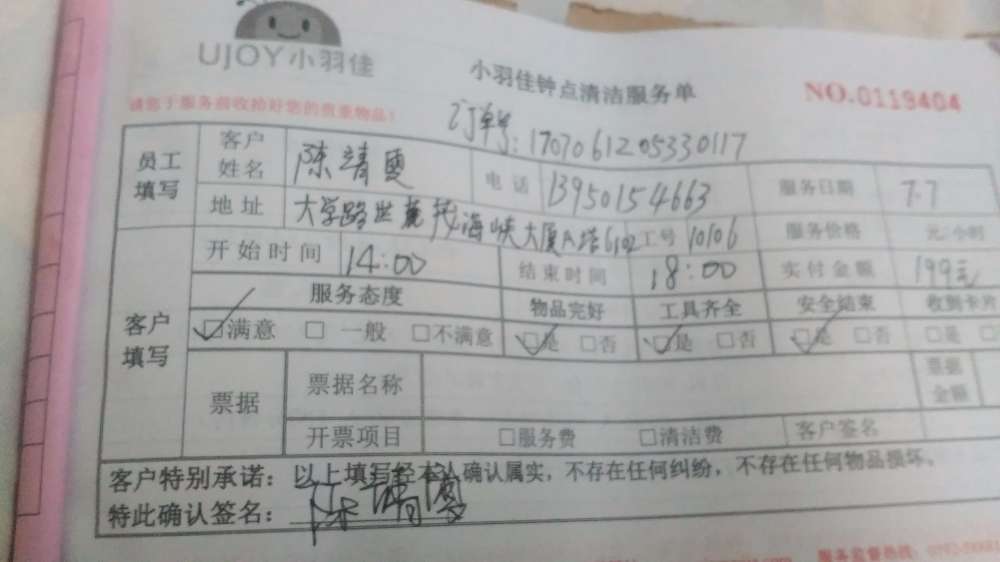 UJOY小羽佳
小羽佳钟点清洁服务单
NO.0119404
请您于服务前收拾好您的贵重物品!
订单号:1707061205330117
员工填写
客户姓名 陈靖雯 电话 13950154663 服务日期 7.7
地址 大学路世茂 海峡大厦A塔6102 工号 10106 服务价格 元/小时
开始时间 14:00 结束时间 18:00 实付金额 199元
客户填写
服务态度 物品完好 工具齐全 安全结束 收到卡片
☑满意 □一般 □不满意 ☑是 □否 ☑是 □否 ☑是 □否 □是 □
票据 票据名称 票据金额
开票项目 □服务费 □清洁费 客户签名
客户特别承诺:以上填写经本人确认属实,不存在任何纠纷,不存在任何物品损坏。
特此确认签名:陈靖雯
服务监督热线:0592-